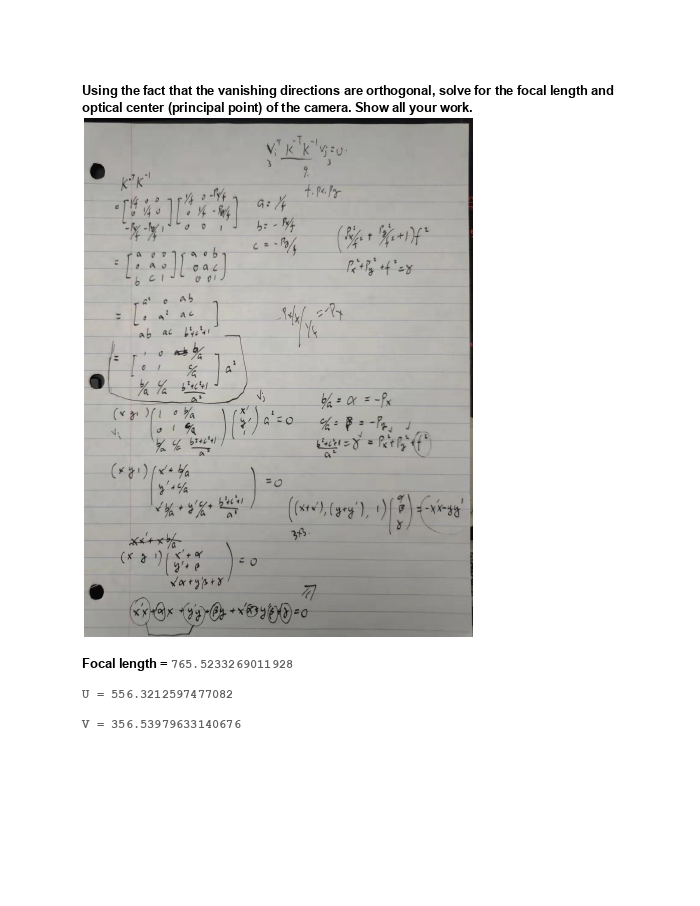 Using the fact that the vanishing directions are orthogonal, solve for the focal length and
optical center (principal point) of the camera. Show all your work.
Vi^T K^-T K^-1 Vj = 0
f, Px, Py
K^-T K^-1
= [1/f 0 0; 0 1/f 0; -Px/f -Py/f 1] [1/f 0 -Px/f; 0 1/f -Py/f; 0 0 1]
a = 1/f
b = -Px/f
c = -Py/f
(Px²/f² + Py²/f² + 1) f²
Px² + Py² + f² = γ
= [a 0 0; 0 a 0; b c 1] [a 0 b; 0 a c; 0 0 1]
= [a² 0 ab; 0 a² ac; ab ac b²+c²+1]
= [1 0 b/a; 0 1 c/a; b/a c/a (b²+c²+1)/a²] a²
b/a = α = -Px
c/a = β = -Py
(b²+c²+1)/a² = γ = Px² + Py² + f²
(x y 1) (1 0 b/a; 0 1 c/a; b/a c/a (b²+c²+1)/a²) (x' y' 1) a² = 0
(x y 1) (x' + b/a; y' + c/a; x' b/a + y' c/a + (b²+c²+1)/a²) = 0
((x+x'), (y+y'), 1) (α β γ) = -x'x - yy'
(x y 1) (x' + α; y' + β; x'α + y'β + γ) = 0
x'x + αx + y'y + βy + x'α + y'β + γ = 0
Focal length = 765.5233269011928
U = 556.3212597477082
V = 356.53979633140676